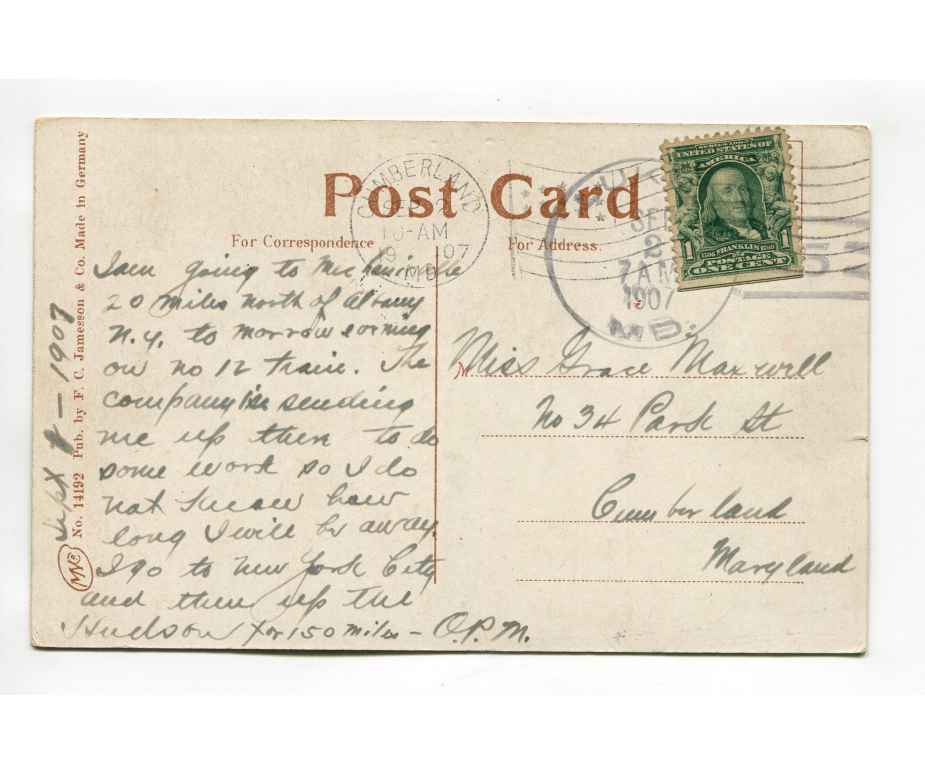 Post Card
For Correspondence
For Address.
No. 14192 Pub. by F. C. Jamesson & Co. Made in Germany
CUMBERLAND
SEP 2
10-AM
19 07
MD.
SEP
2
7 AM
1907
MD.
SERIES 1902
UNITED STATES OF
AMERICA
1 FRANKLIN 1
POSTAGE
ONE CENT
Sept 1 - 1907
I am going to
20 miles north of Albany
N.Y. to morrow evening
on no 12 train. The
company is sending
me up then to do
some work so I do
not know how
long I will be away.
I go to New York City
and then up the
Hudson for 150 miles - O.P.M.
Miss Grace Maxwell
No 34 Park St
Cumberland
Maryland